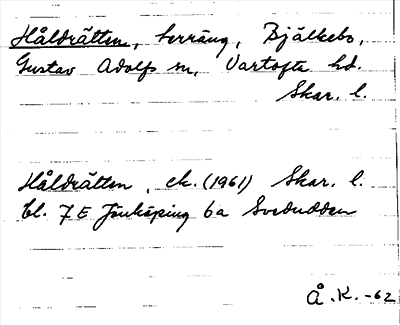 Håldrätten, terräng, Bjälkebo,
Gustav Adolfs sn, Vartofta hd.
Skar. l.
Håldrätten, ek. (1961) Skar. l.
bl. 7 E Jönköping 6a Svedudden
Å. K. -62